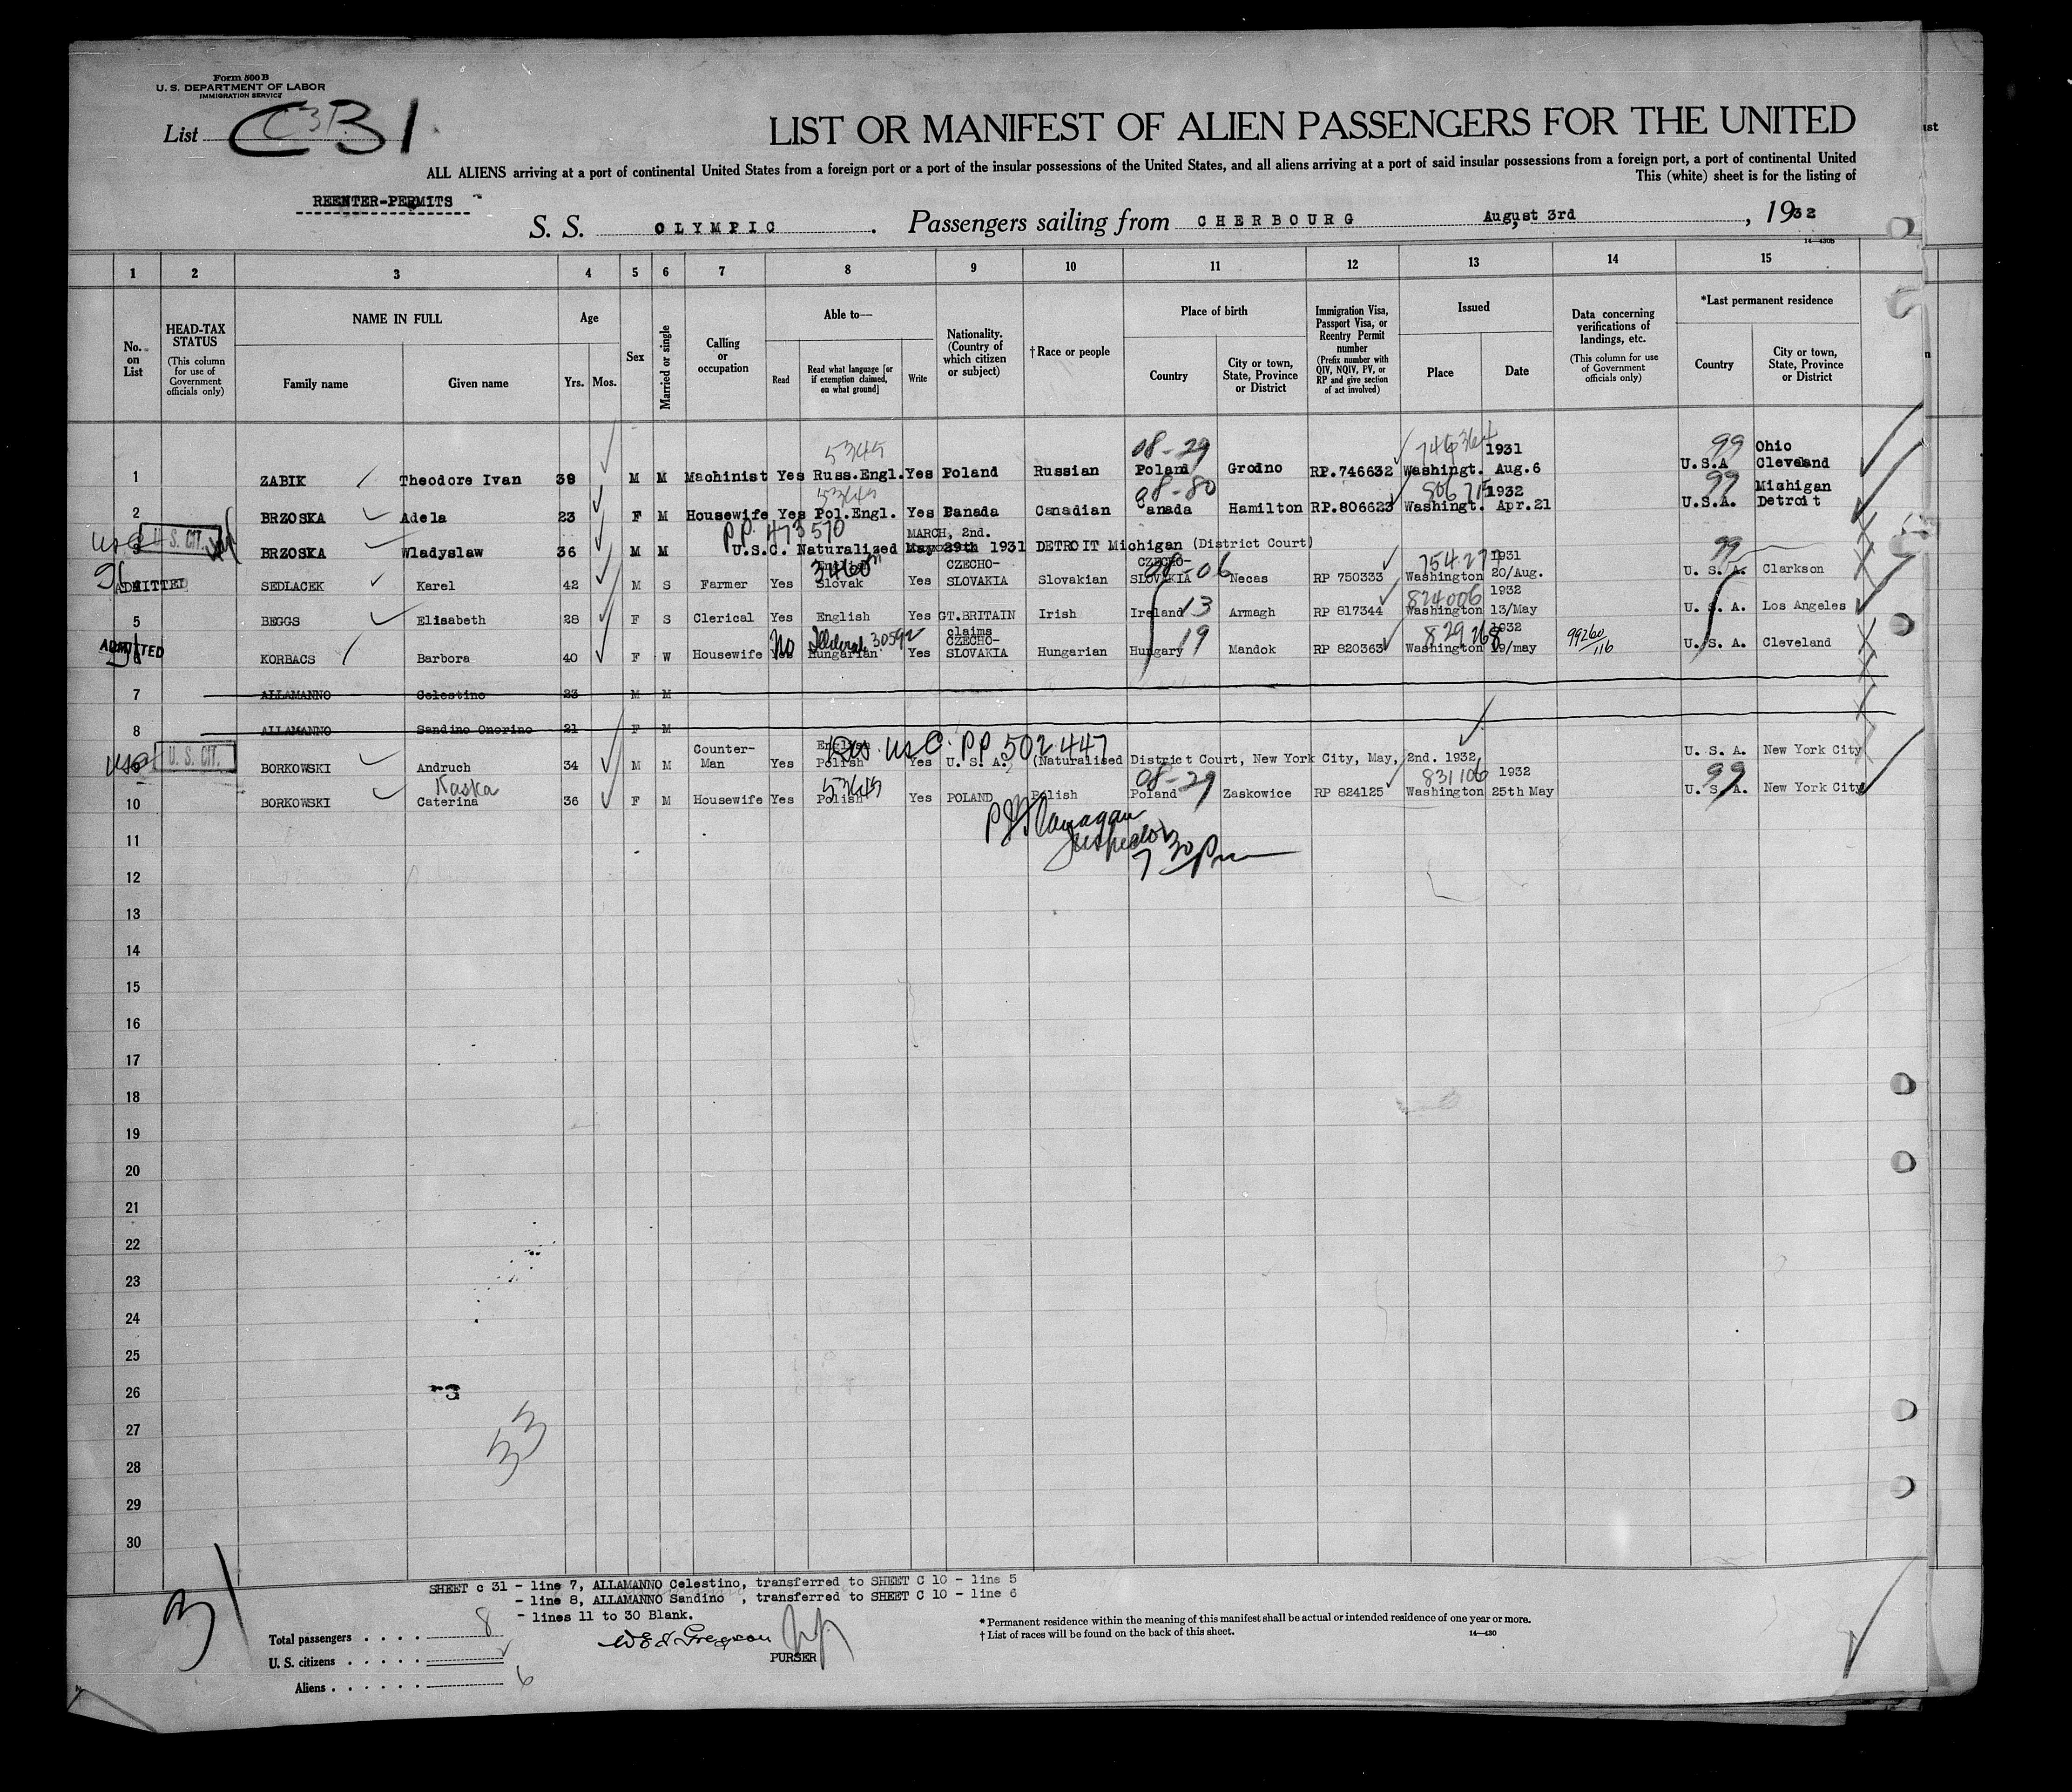 Form 500 B
U. S. DEPARTMENT OF LABOR
IMMIGRATION SERVICE
List C 31
LIST OR MANIFEST OF ALIEN PASSENGERS FOR THE UNITED
ALL ALIENS arriving at a port of continental United States from a foreign port or a port of the insular possessions of the United States, and all aliens arriving at a port of said insular possessions from a foreign port, a port of continental United
This (white) sheet is for the listing of
REENTER-PERMITS
S. S. OLYMPIC . Passengers sailing from CHERBOURG August 3rd , 1932
14—430b
1 2 3 4 5 6 7 8 9 10 11 12 13 14 15
No. on List
HEAD-TAX STATUS (This column for use of Government officials only)
NAME IN FULL
Family name Given name
Age
Yrs. Mos.
Sex
Married or single
Calling or occupation
Able to—
Read Read what language [or if exemption claimed, on what ground] Write
Nationality. (Country of which citizen or subject)
† Race or people
Place of birth
Country City or town, State, Province or District
Immigration Visa, Passport Visa, or Reentry Permit number (Prefix number with QIV, NQIV, PV, or RP and give section of act involved)
Issued
Place Date
Data concerning verifications of landings, etc. (This column for use of Government officials only)
*Last permanent residence
Country City or town, State, Province or District
5345 08-29 746364 1931 99 Ohio
1 ZABIK Theodore Ivan 38 M M Machinist Yes Russ.Engl. Yes Poland Russian Poland Grodno RP.746632 Washingt. Aug.6 U.S.A Cleveland
5345 08-80 806715 1932 99 Michigan
2 BRZOSKA Adela 23 F M Housewife Yes Pol.Engl. Yes Canada Canadian Canada Hamilton RP.806623 Washingt. Apr.21 U.S.A. Detroit
P.P. 473570 MARCH, 2nd.
usc U. S. CIT. 3 BRZOSKA Wladyslaw 36 M M U.S.C. Naturalized May 29th 1931 DETROIT Michigan (District Court)
English 3460 CZECHO- CZECHO- 08-06 75427 1931 99
ADMITTED 4 SEDLACEK Karel 42 M S Farmer Yes Slovak Yes SLOVAKIA Slovakian SLOVAKIA Necas RP 750333 Washington 20/Aug. U. S. A. Clarkson
824006 1932
5 BEGGS Elisabeth 28 F S Clerical Yes English Yes GT.BRITAIN Irish Ireland 13 Armagh RP 817344 Washington 13/May U. S. A. Los Angeles
No Illiterate 30592 claims CZECHO- 19 829268 1932 99260/116
ADMITTED 6 KORBACS Barbora 40 F W Housewife Yes Hungarian Yes SLOVAKIA Hungarian Hungary Mandok RP 820363 Washington 19/may U. S. A. Cleveland
7 ALLAMANNO Celestino 23 M M
8 ALLAMANNO Sandino Onorino 21 F M
Counter- English usc. P.P. 502447
usc U. S. CIT. 9 BORKOWSKI Andruch 34 M M Man Yes Polish Yes U. S. A. (Naturalised District Court, New York City, May, 2nd. 1932 U. S. A. New York City
Kaska 5345 08-29 831106 1932 99
10 BORKOWSKI Caterina 36 F M Housewife Yes Polish Yes POLAND Polish Poland Zaskowice RP 824125 Washington 25th May U. S. A. New York City
P J Flanagan
Inspector
7 30 Pm
11
12
13
14
15
16
17
18
19
20
21
22
23
24
25
26
27
28
29
30
33
31
SHEET c 31 - line 7, ALLAMANNO Celestino, transferred to SHEET C 10 - line 5
- line 8, ALLAMANNO Sandino , transferred to SHEET C 10 - line 6
- lines 11 to 30 Blank.
Total passengers . . . . 8
U. S. citizens . . . . . 2
Aliens . . . . . . 6
PURSER
* Permanent residence within the meaning of this manifest shall be actual or intended residence of one year or more.
† List of races will be found on the back of this sheet.
14—430